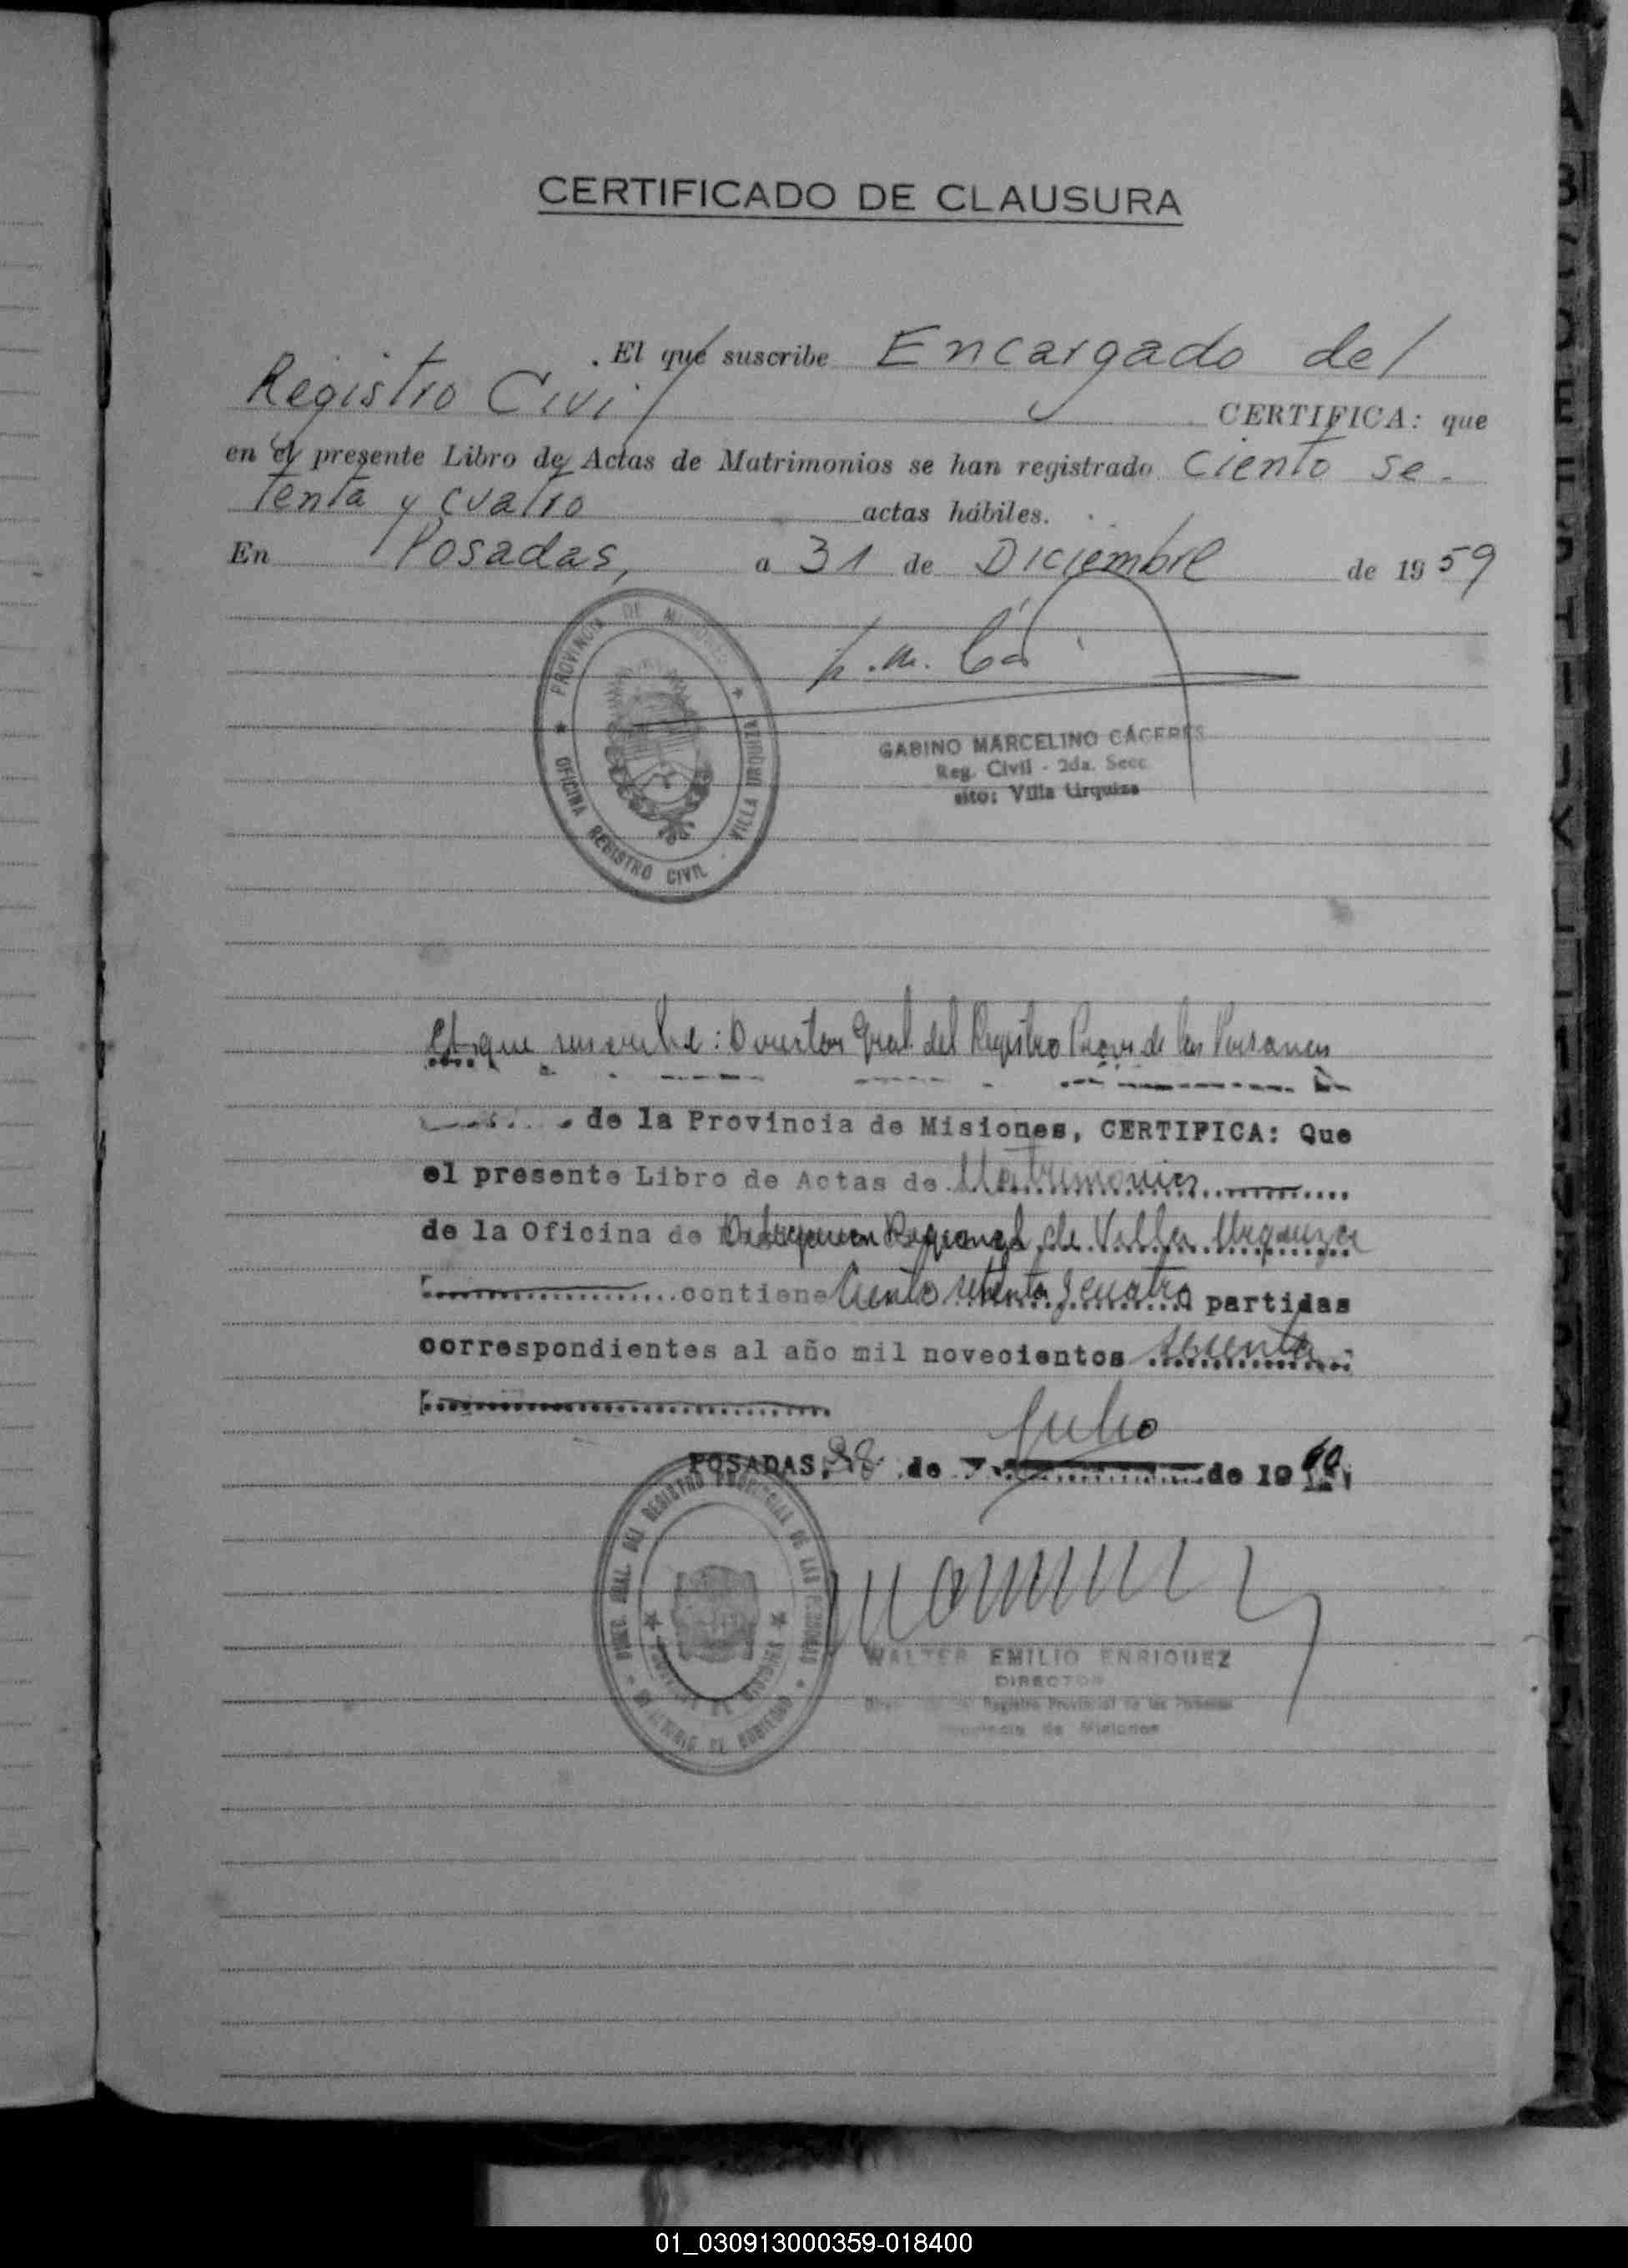 CERTIFICADO DE CLAUSURA
El que suscribe Encargado del
Registro Civil CERTIFICA: que
en el presente Libro de Actas de Matrimonios se han registrado Ciento se-
tenta y cuatro actas hábiles.
En Posadas, a 31 de Diciembre de 1959
PROVINCIA DE MISIONES
OFICINA REGISTRO CIVIL - VILLA URQUIZA
GABINO MARCELINO CÁCERES
Reg. Civil - 2da. Secc
sito: Villa Urquiza
El que suscribe: Director Gral. del Registro Prov. de las Personas
de la Provincia de Misiones, CERTIFICA: Que
el presente Libro de Actas de Matrimonios
de la Oficina de Delegacion Regional de Villa Urquiza
contiene Ciento setenta y cuatro partidas
correspondientes al año mil novecientos sesenta
Julio
POSADAS, 28 de de 1960
GRAL. DEL REGISTRO PROVINCIAL DE LAS PERSONAS
WALTER EMILIO ENRIQUEZ
DIRECTOR
Registro Provincial de las Personas
Provincia de Misiones
01_030913000359-018400